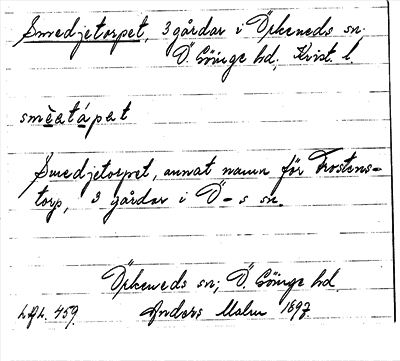 Smedjetorpet, 3 gårdar i Örkeneds sn;
Ö. Göinge hd, Krist. l.
smèatápat
Smedjetorpet, annat namn för Trostens-
torp, 3 gårdar i Ö-s sn.
Örkeneds sn; Ö. Göinge hd.
LfL. 459. Anders Malm 1897